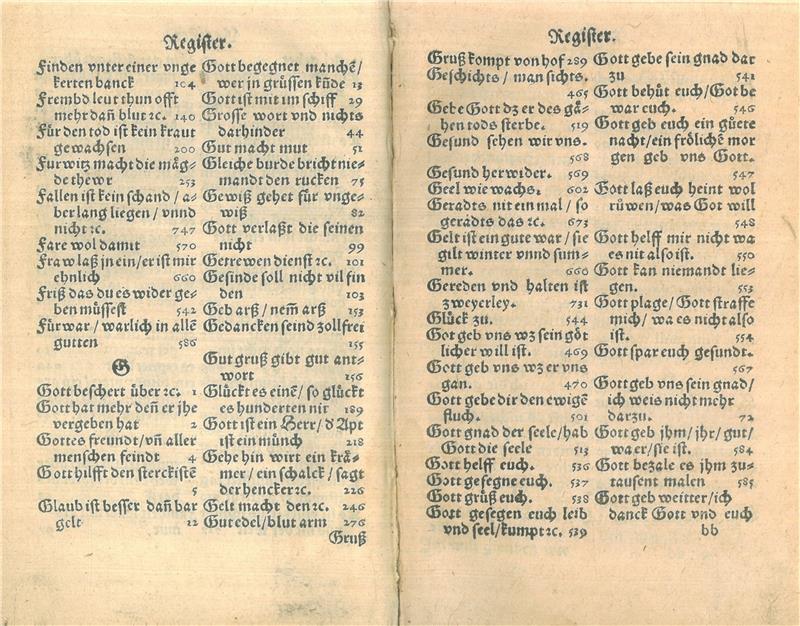 Register.
Finden vnter einer vnge
kerten banck 104
Frembd leut thun offt
mehr dañ blut ꝛc. 140
Für den tod ist kein kraut
gewachsen 200
Furwitz macht die mäg⸗
de thewr 253
Fallen ist kein schand / a⸗
ber lang liegen / vnnd
nicht ꝛc. 747
Fare wol damit 570
Fraw laß jn ein / er ist mir
ehnlich 660
Friß das du es wider ge⸗
ben müssest 542
Fürwar / warlich in allẽ
gutten 586
G
Gott beschert über ꝛc. 1
Gott hat mehr deñ er jhe
vergeben hat 2
Gottes freundt / vñ aller
menschen feindt 4
Gott hilfft den sterckistẽ
5
Glaub ist besser dañ bar
gelt 12
Gott begegnet manchẽ /
wer jn grüssen kũde 13
Gott ist mit im schiff 29
Grosse wort vnd nichts
darhinder 44
Gut macht mut 51
Gleiche burde bricht nie⸗
mandt den rucken 75
Gewiß gehet für vnge⸗
wiß 82
Gott verlaßt die seinen
nicht 99
Getrewen dienst ꝛc. 101
Gesinde soll nicht vil fin
den 103
Geb arß / nem̃ arß 153
Gedancken seind zollfrei
155
Gut gruß gibt gut ant⸗
wort 156
Glückt es einẽ / so glückt
es hunderten nir 189
Gott ist ein Herr / d Apt
ist ein münch 218
Gehe hin wirt ein krä⸗
mer / ein schalck / sagt
der hencker ꝛc. 226
Gelt macht den ꝛc. 246
Gut edel / blut arm 276
Gruß
Register.
Gruß kompt von hof 289
Geschichts / man sichts.
465
Gebe Gott dz er des gä⸗
hen tods sterbe. 519
Gesund sehen wir vns.
568
Gesund her wider. 569
Geel wie wachs. 602
Geradts nit ein mal / so
geradts das ꝛc. 673
Gelt ist ein gute war / sie
gilt winter vnnd sum⸗
mer. 660
Gereden vnd halten ist
zweyerley. 731
Glück zu. 544
Got geb vns wz sein göt
licher will ist. 469
Gott geb vns wz er vns
gan. 470
Gott gebe dir den ewigẽ
fluch. 501
Gott gnad der seele / hab
Gott die seele 513
Gott helff euch. 536
Gott gesegne euch. 537
Gott grüß euch. 538
Gott gesegen euch leib
vnd seel / kumpt ꝛc. 539
Gott gebe sein gnad dar
zu 541
Gott behüt euch / Got be
war euch. 546
Gott geb euch ein güete
nacht / ein frölichẽ mor
gen geb vns Gott.
547
Gott laß euch heint wol
rüwen / was Got will
548
Gott helff mir nicht wa
es nit also ist. 550
Gott kan niemandt lie⸗
gen. 553
Gott plage / Gott straffe
mich / wa es nicht also
ist. 554
Gott spar euch gesundt.
567
Gott geb vns sein gnad /
ich weis nicht mehr
darzu. 72
Gott geb jhm / jhr / gut /
wa er / sie ist. 584
Gott bezale es jhm zu⸗
tausent malen 585
Gott geb weitter / ich
danck Gott vnd euch
bb